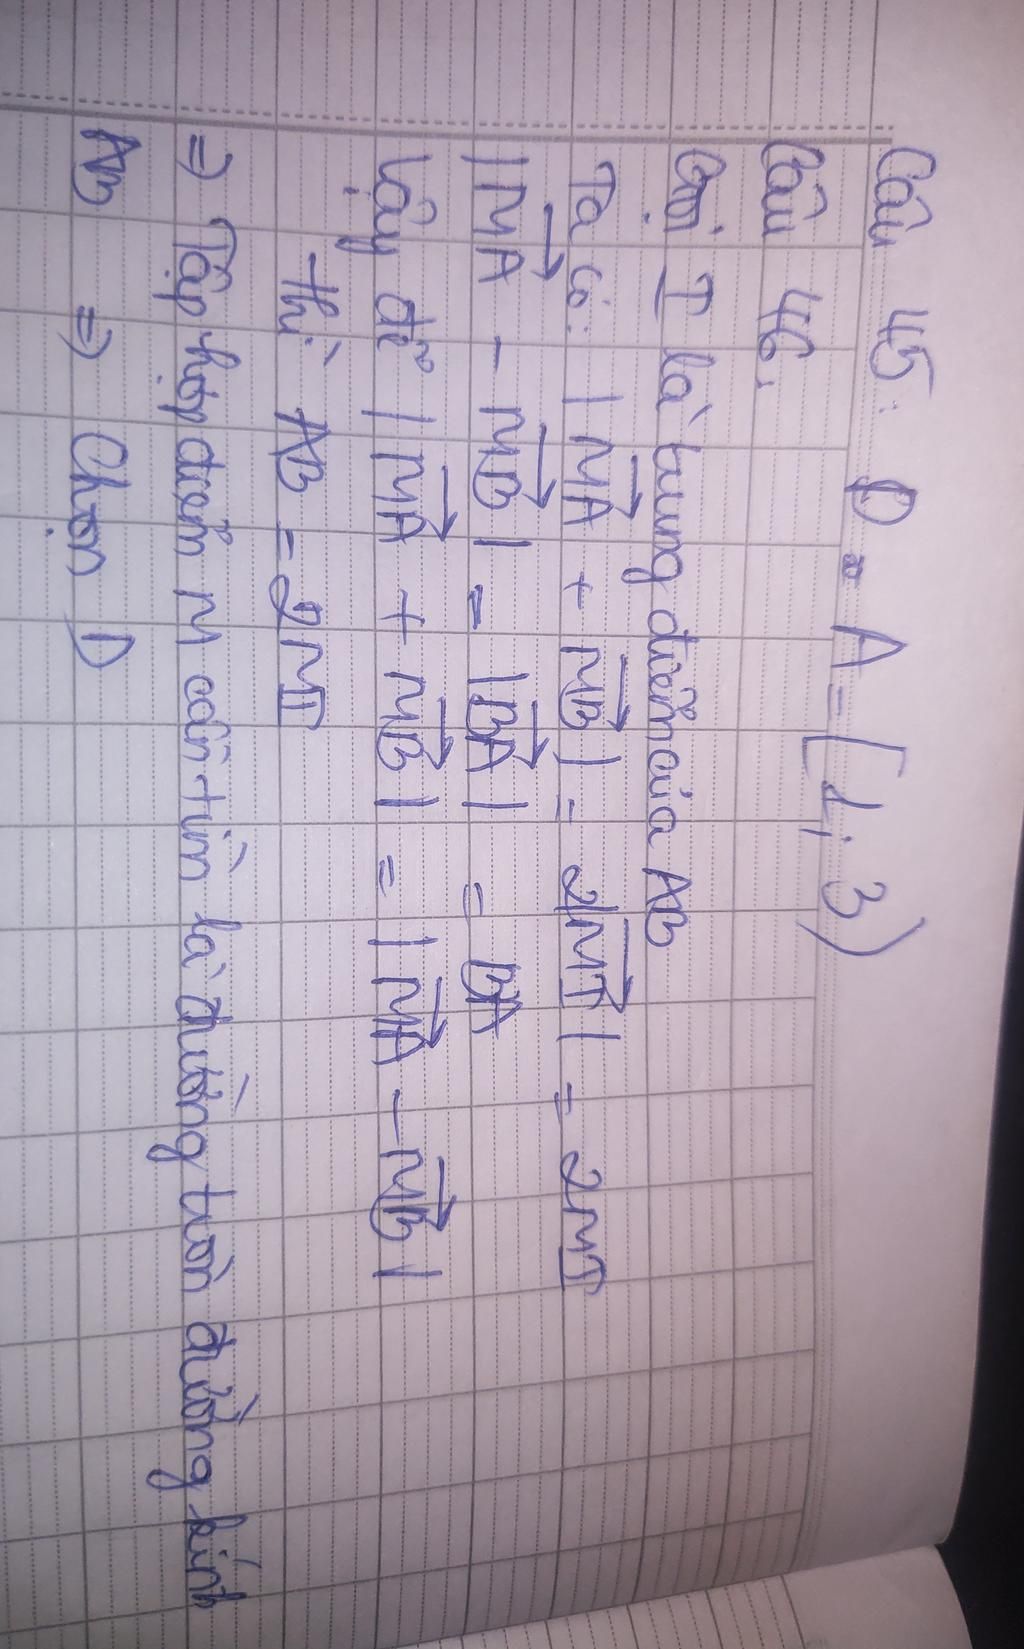 Câu 45: D. A = [1; 3)
Câu 46.
Gọi I là trung điểm của AB
Ta có: |MA + MB| = 2|MI| = 2MI
|MA - MB| = |BA| = BA
Vậy để |MA + MB| = |MA - MB|
thì AB = 2MI
⇒ Tập hợp điểm M cần tìm là đường tròn đường kính
AB ⇒ Chọn D